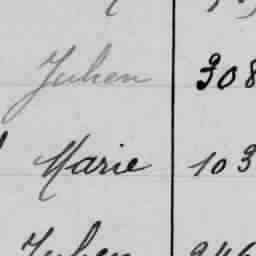 Julien 308
Marie 103
Julien